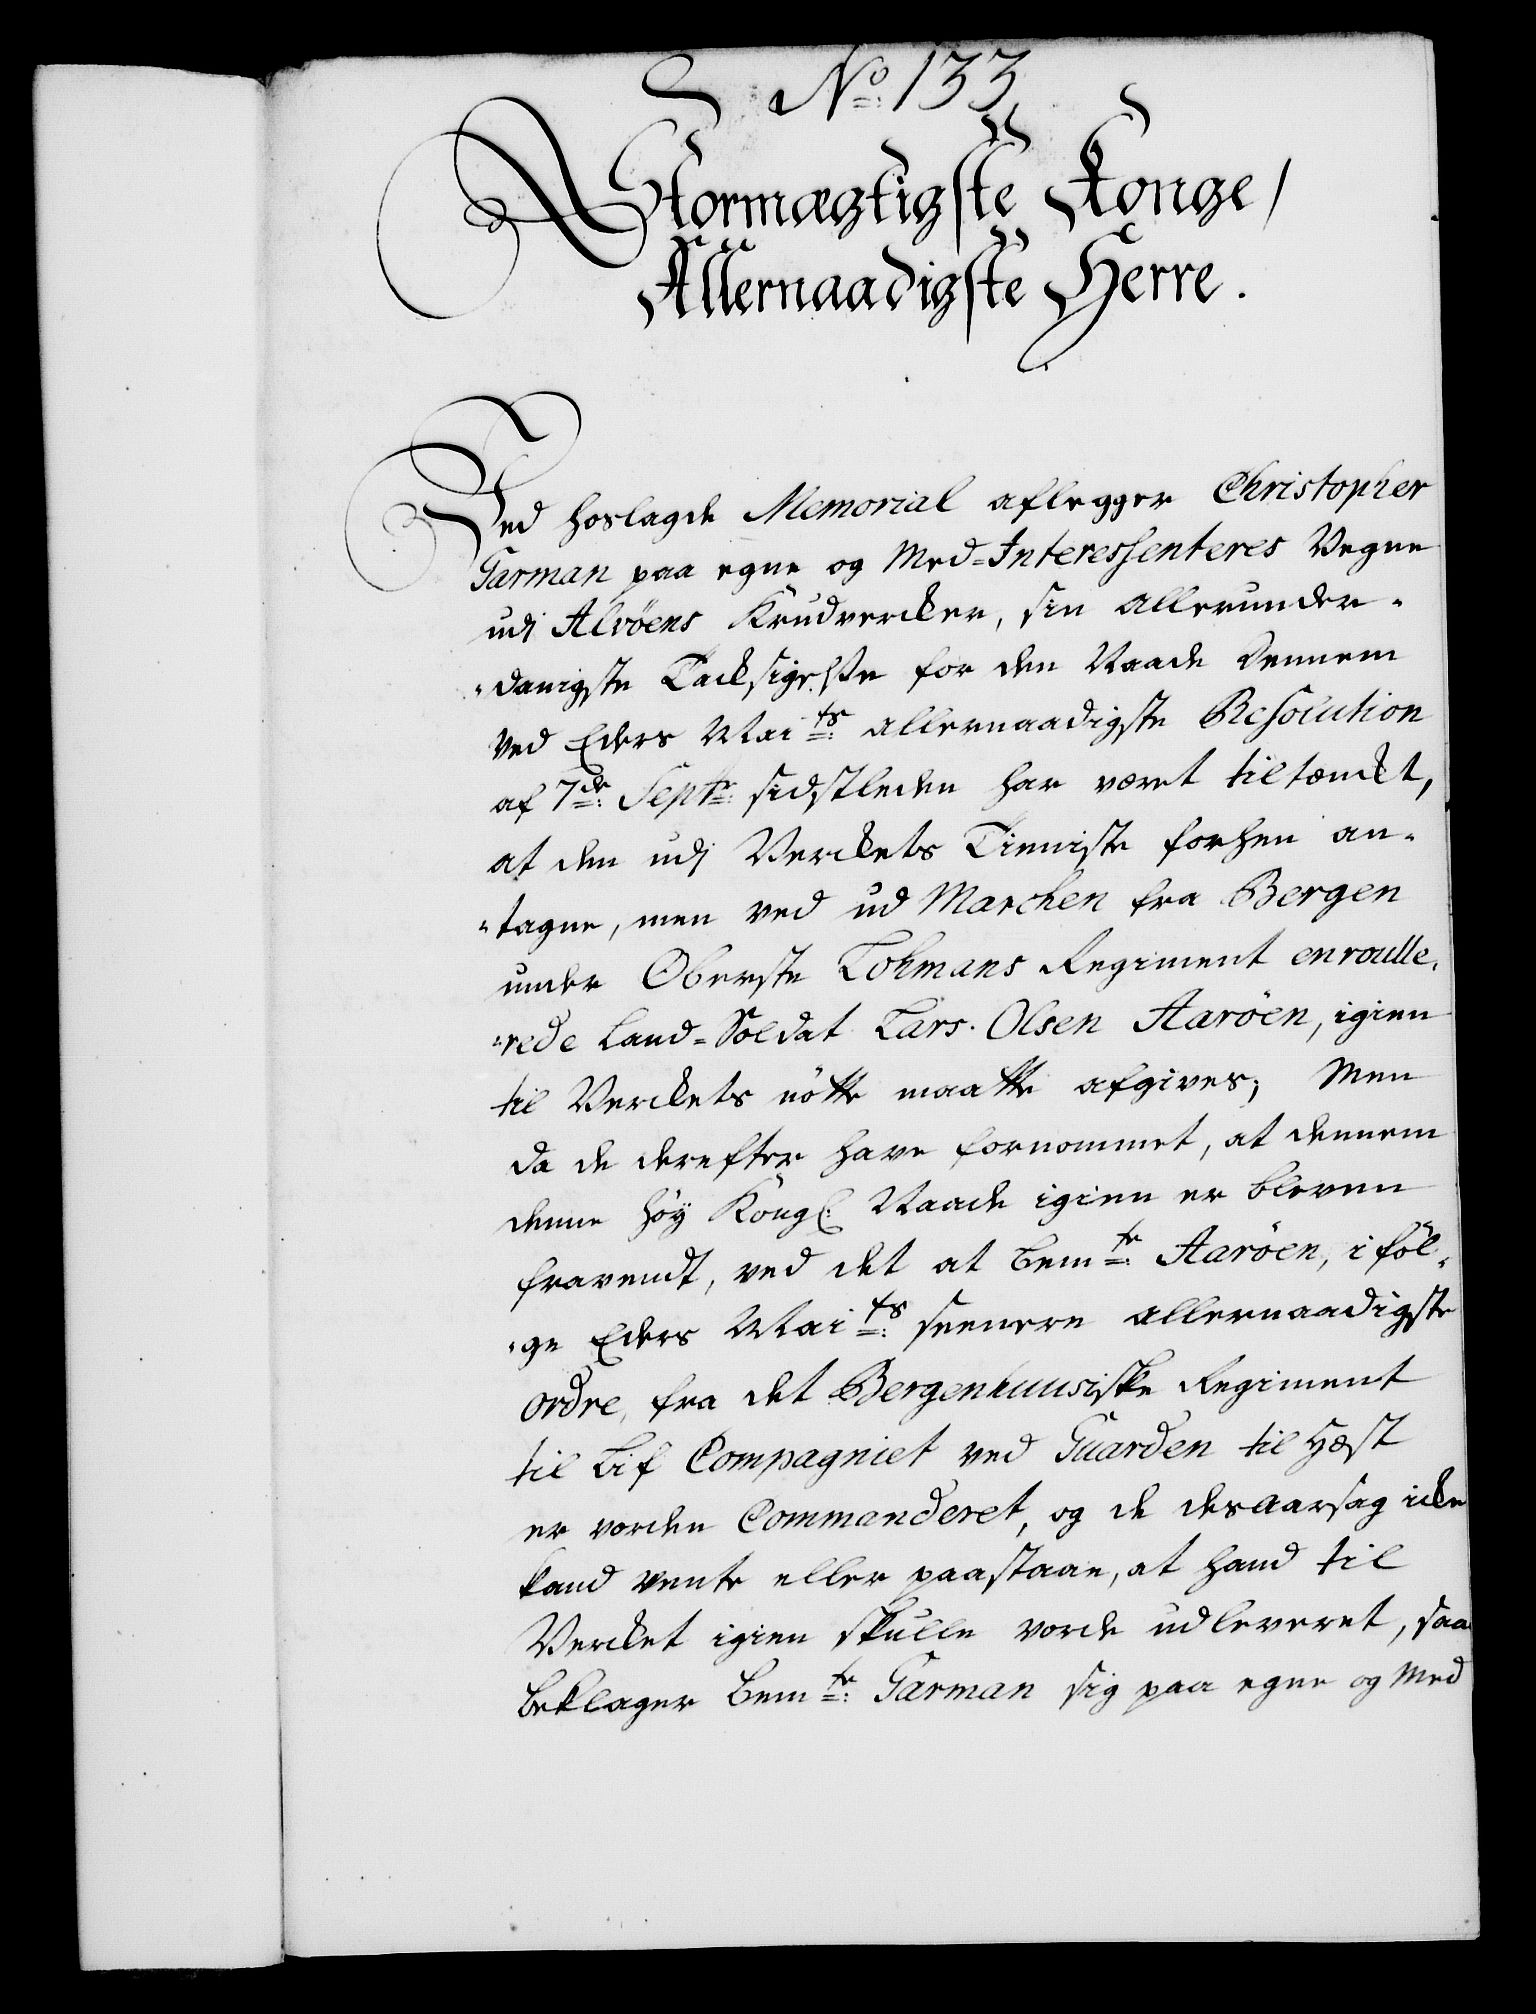 No: 133
Stormægtigste Konge,
Allernaadigste Herre.
Ved hoslagde Memorial aflegger Christopher
Garman paa egne og Med-Interessenteres Vegne
udi Alvöens Krudvercker, sin allerunder-
-danigste Tacksigelse for den Naade dennem
ved Eders Maits: allernaadigste Resolution
af 7de: Septr: sidstleden har været tiltænckt,
at den udi Verckets Tieniste forhen an-
-tagne, men ved ud Marchen fra Bergen
under Oberste Lohmans Regiment enroulle-
-rede Land-Soldat Lars Olsen Aaröen, igien
til Verckets nötte maatte afgives; Men
da de derefter have fornommet, at dennem
denne höy Kongl: Naade igien er bleven
fravendt, ved det at bemte: Aaröen, i föl-
-ge Eders Maits: seenere allernaadigste
Ordre, fra det Bergenhuusiske Regiment
til Lif Compagniet ved Guarden til Hæst
er vorden Commanderet, og de desaarsag icke
kand vente eller paastaae, at hand til
Vercket igien skulle vorde udleveret, saa
beklager bemte: Garman sig paa egne og Med